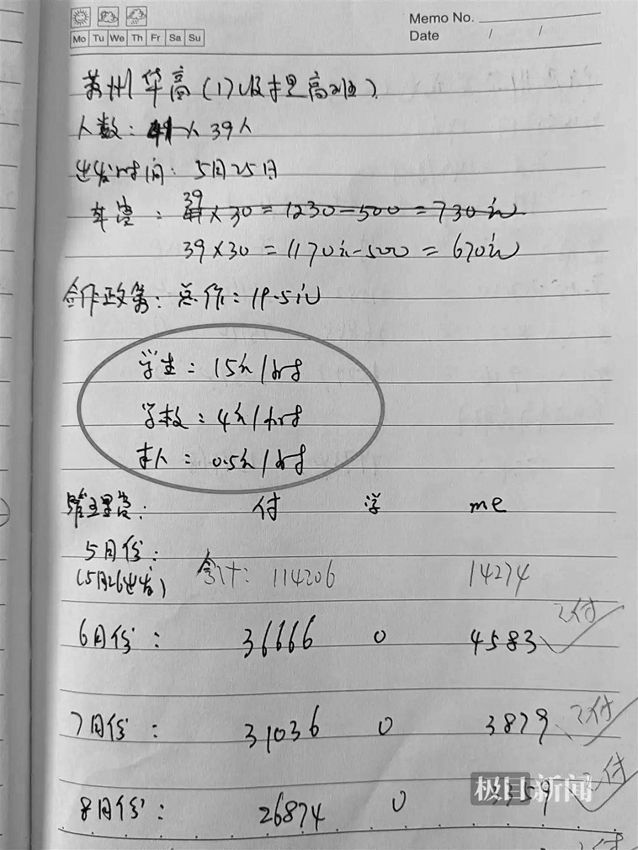 Memo No.
Mo Tu We Th Fr Sa Su
Date / /
苏州华高(17级提高班)
人数: 41人 39人
出发时间: 5月25日
车费: 41 39 ×30=1230-500=730元
39×30=1170元-500=670元
合作政策: 总价: 19.5元
学生: 15元/时
学校: 4元/时
本人: 0.5元/时
管理费: 付 学 me
5月份:
(5月26出发) 合计: 114206 14274
6月份: 36666 0 4583 已付
7月份: 31036 0 3879 已付
8月份: 26874 0 付
极目新闻
付